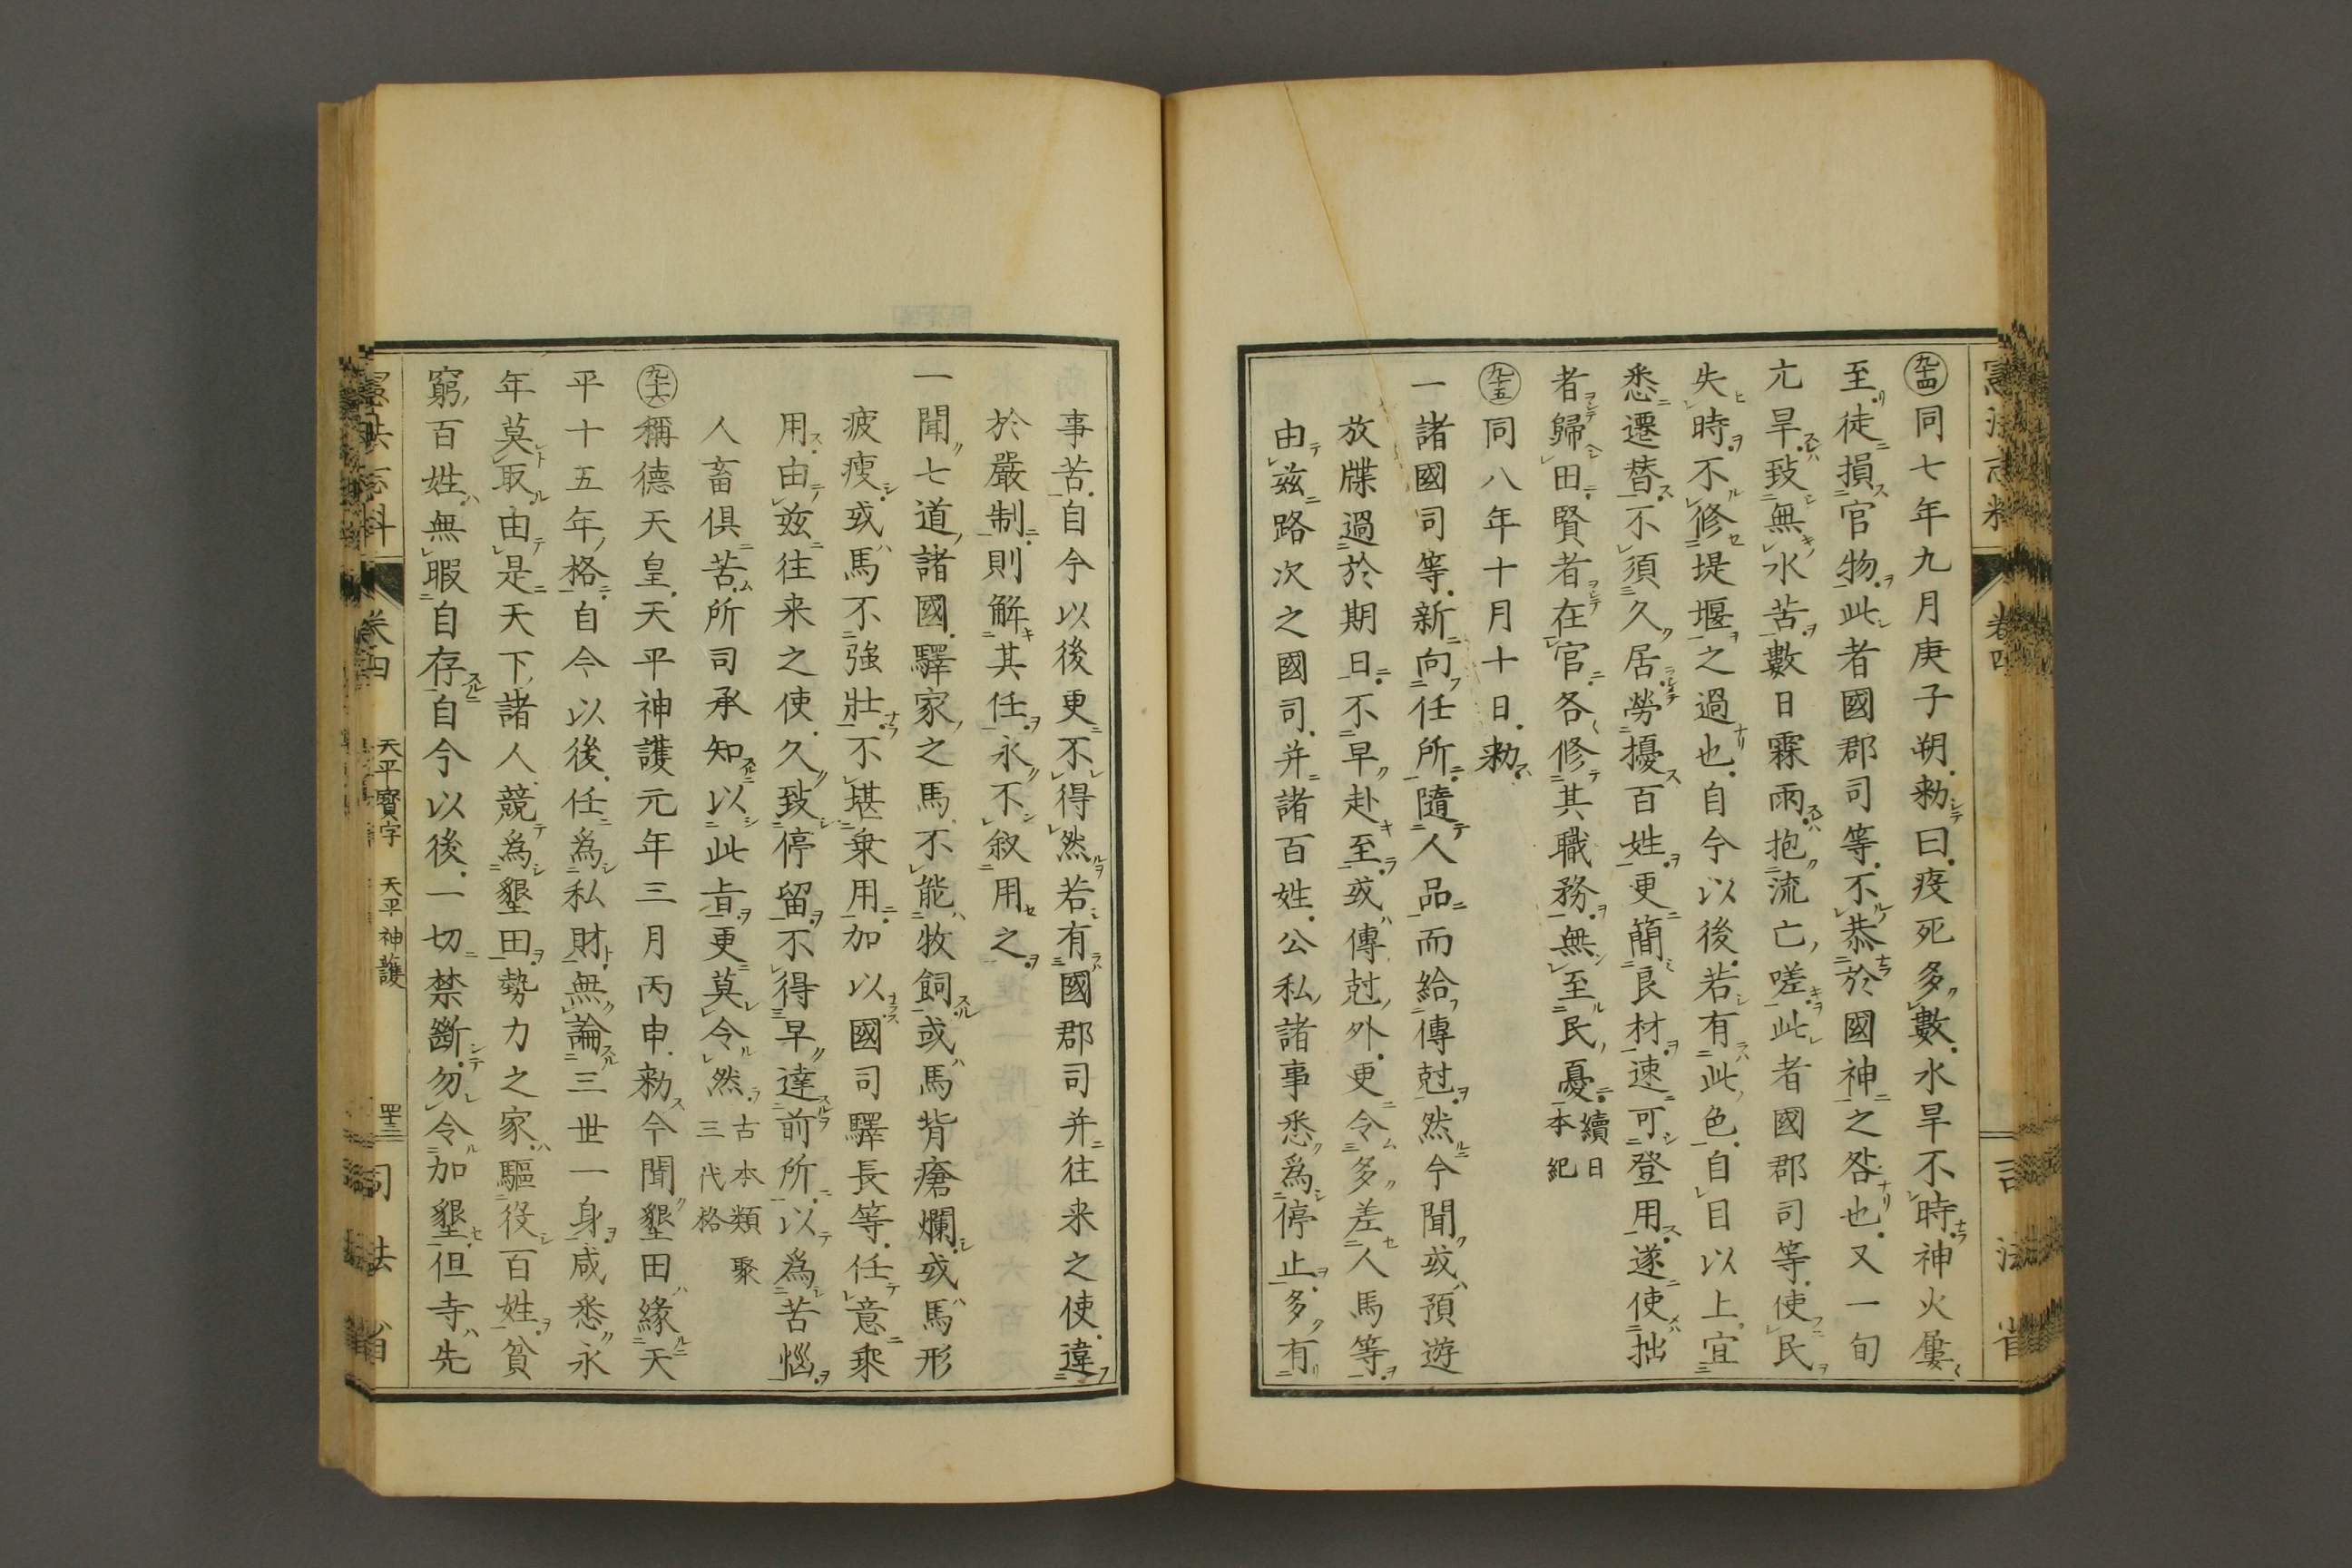 九十四 同七年九月庚子朔勑曰疫死多數水旱不時神火屢
至徒損官物此者國郡司等不恭於國神之咎也又一旬
亢旱致無水苦數日霖雨抱流亡嗟此者國郡司等使民
失時不修堤堰之過也自今以後若有此色自目以上宜
悉遷替不須久居勞擾百姓更簡良材速可登用遂使拙
者歸田賢者在官各修其職務無至民憂 續日本紀
九十五 同八年十月十日勑
一諸國司等新向任所隨人品而給傳尅然今聞或預遊
放牒過於期日不早赴至或傳尅外更令多差人馬等
由茲路次之國司并諸百姓公私諸事悉爲停止多有
事苦自今以後更不得然若有國郡司并往来之使違
於嚴制則解其任永不叙用之
一聞七道諸國驛家之馬不能牧飼或馬背瘡爛或馬形
疲瘦或馬不強壯不堪乗用加以國司驛長等任意乘
用由茲往来之使久致停留不得早達前所以爲苦惱
人畜俱苦所司承知以此㫖更莫令然 古本類聚三代格
九十六 稱德天皇天平神護元年三月丙申勑今聞墾田緣天
平十五年格自今以後任爲私財無論三世一身咸悉永
年莫取由是天下諸人競爲墾田勢力之家驅役百姓貧
窮百姓無暇自存自今以後一切禁斷勿令加墾但寺先
憲法志料 卷四 天平寳字 天平神護 四十三 司法省